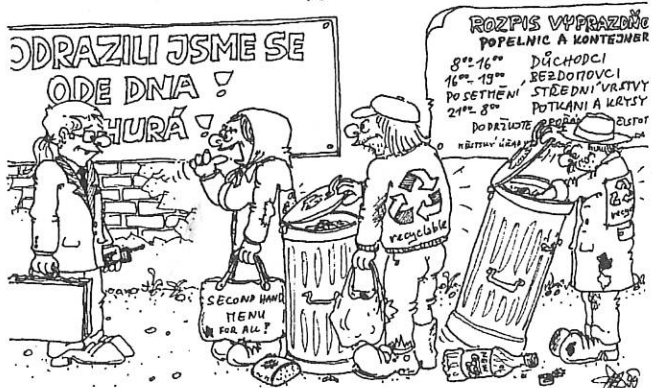 ODRAZILI JSME SE
ODE DNA!
HURÁ!
ROZPIS VYPRAZDŇO
POPELNIC A KONTEJNER
8⁰⁰-16⁰⁰ DŮCHODCI
16⁰⁰-19⁰⁰ BEZDOMOVCI
PO SETMĚNÍ STŘEDNÍ VRSTVY
21⁰⁰-8⁰⁰ POTKANI A KRYSY
MĚSTSKÝ ÚŘAD
recyclable
SECOND HAND
MENU
FOR ALL!